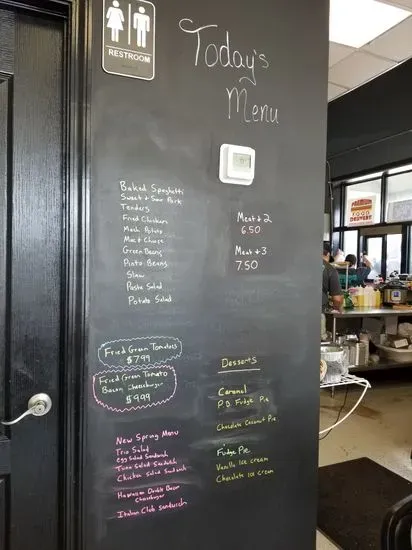 RESTROOM
Today's
Menu
Baked Spaghetti
Sweet + Sour Pork
Tenders
Fried Chickens
Mash Potato
Mac + Cheese
Green Beans
Pinto Beans
Slaw
Pasta Salad
Potato Salad
Meat + 2
6.50
Meat + 3
7.50
Fried Green Tomatoes
$7.99
Fried Green Tomato
Bacon Cheeseburger
$9.99
Desserts
Caramel
P.B Fudge Pie
Chocolate Coconut Pie
Fudge Pie
Vanilla Ice cream
Chocolate Ice cream
New Spring Menu
Trio Salad
egg Salad Sandwich
Tuna Salad Sandwich
Chicken Salad Sandwich
Hawaiian Double Bacon
Cheeseburger
Italian Club Sandwich
PREMIUM
FOOD
DELIVERY